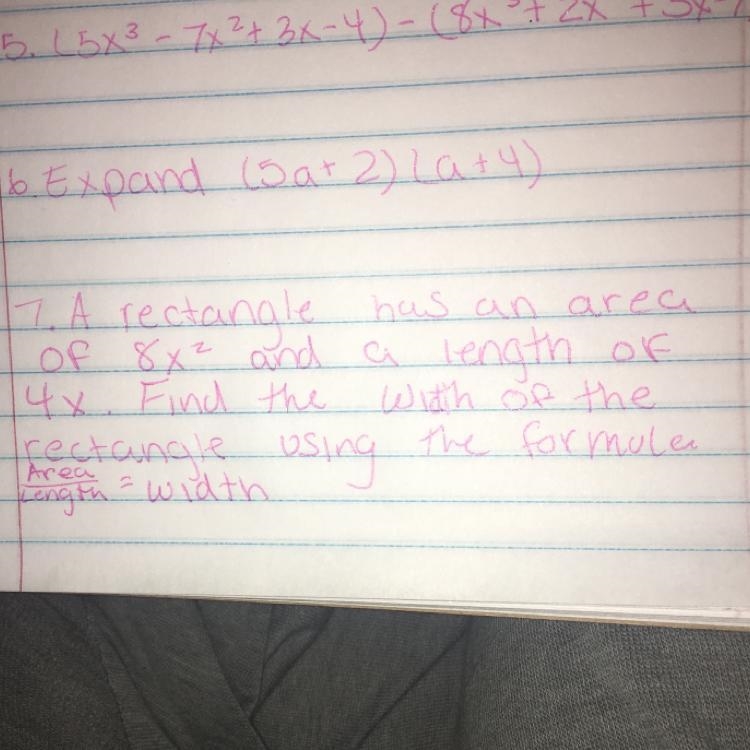 5. (5x³ - 7x² + 3x - 4) - (8x³ + 2x + 3x -
6. Expand (5a + 2)(a + 4)
7. A rectangle has an area
of 8x² and a length of
4x. Find the width of the
rectangle using the formula
Area/Length = width